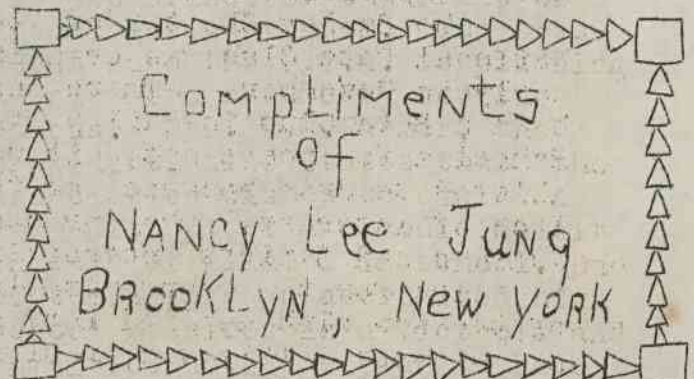 COMPLIMENTS
Of
NANCY Lee JUNg
BROOKLYN, New YORK